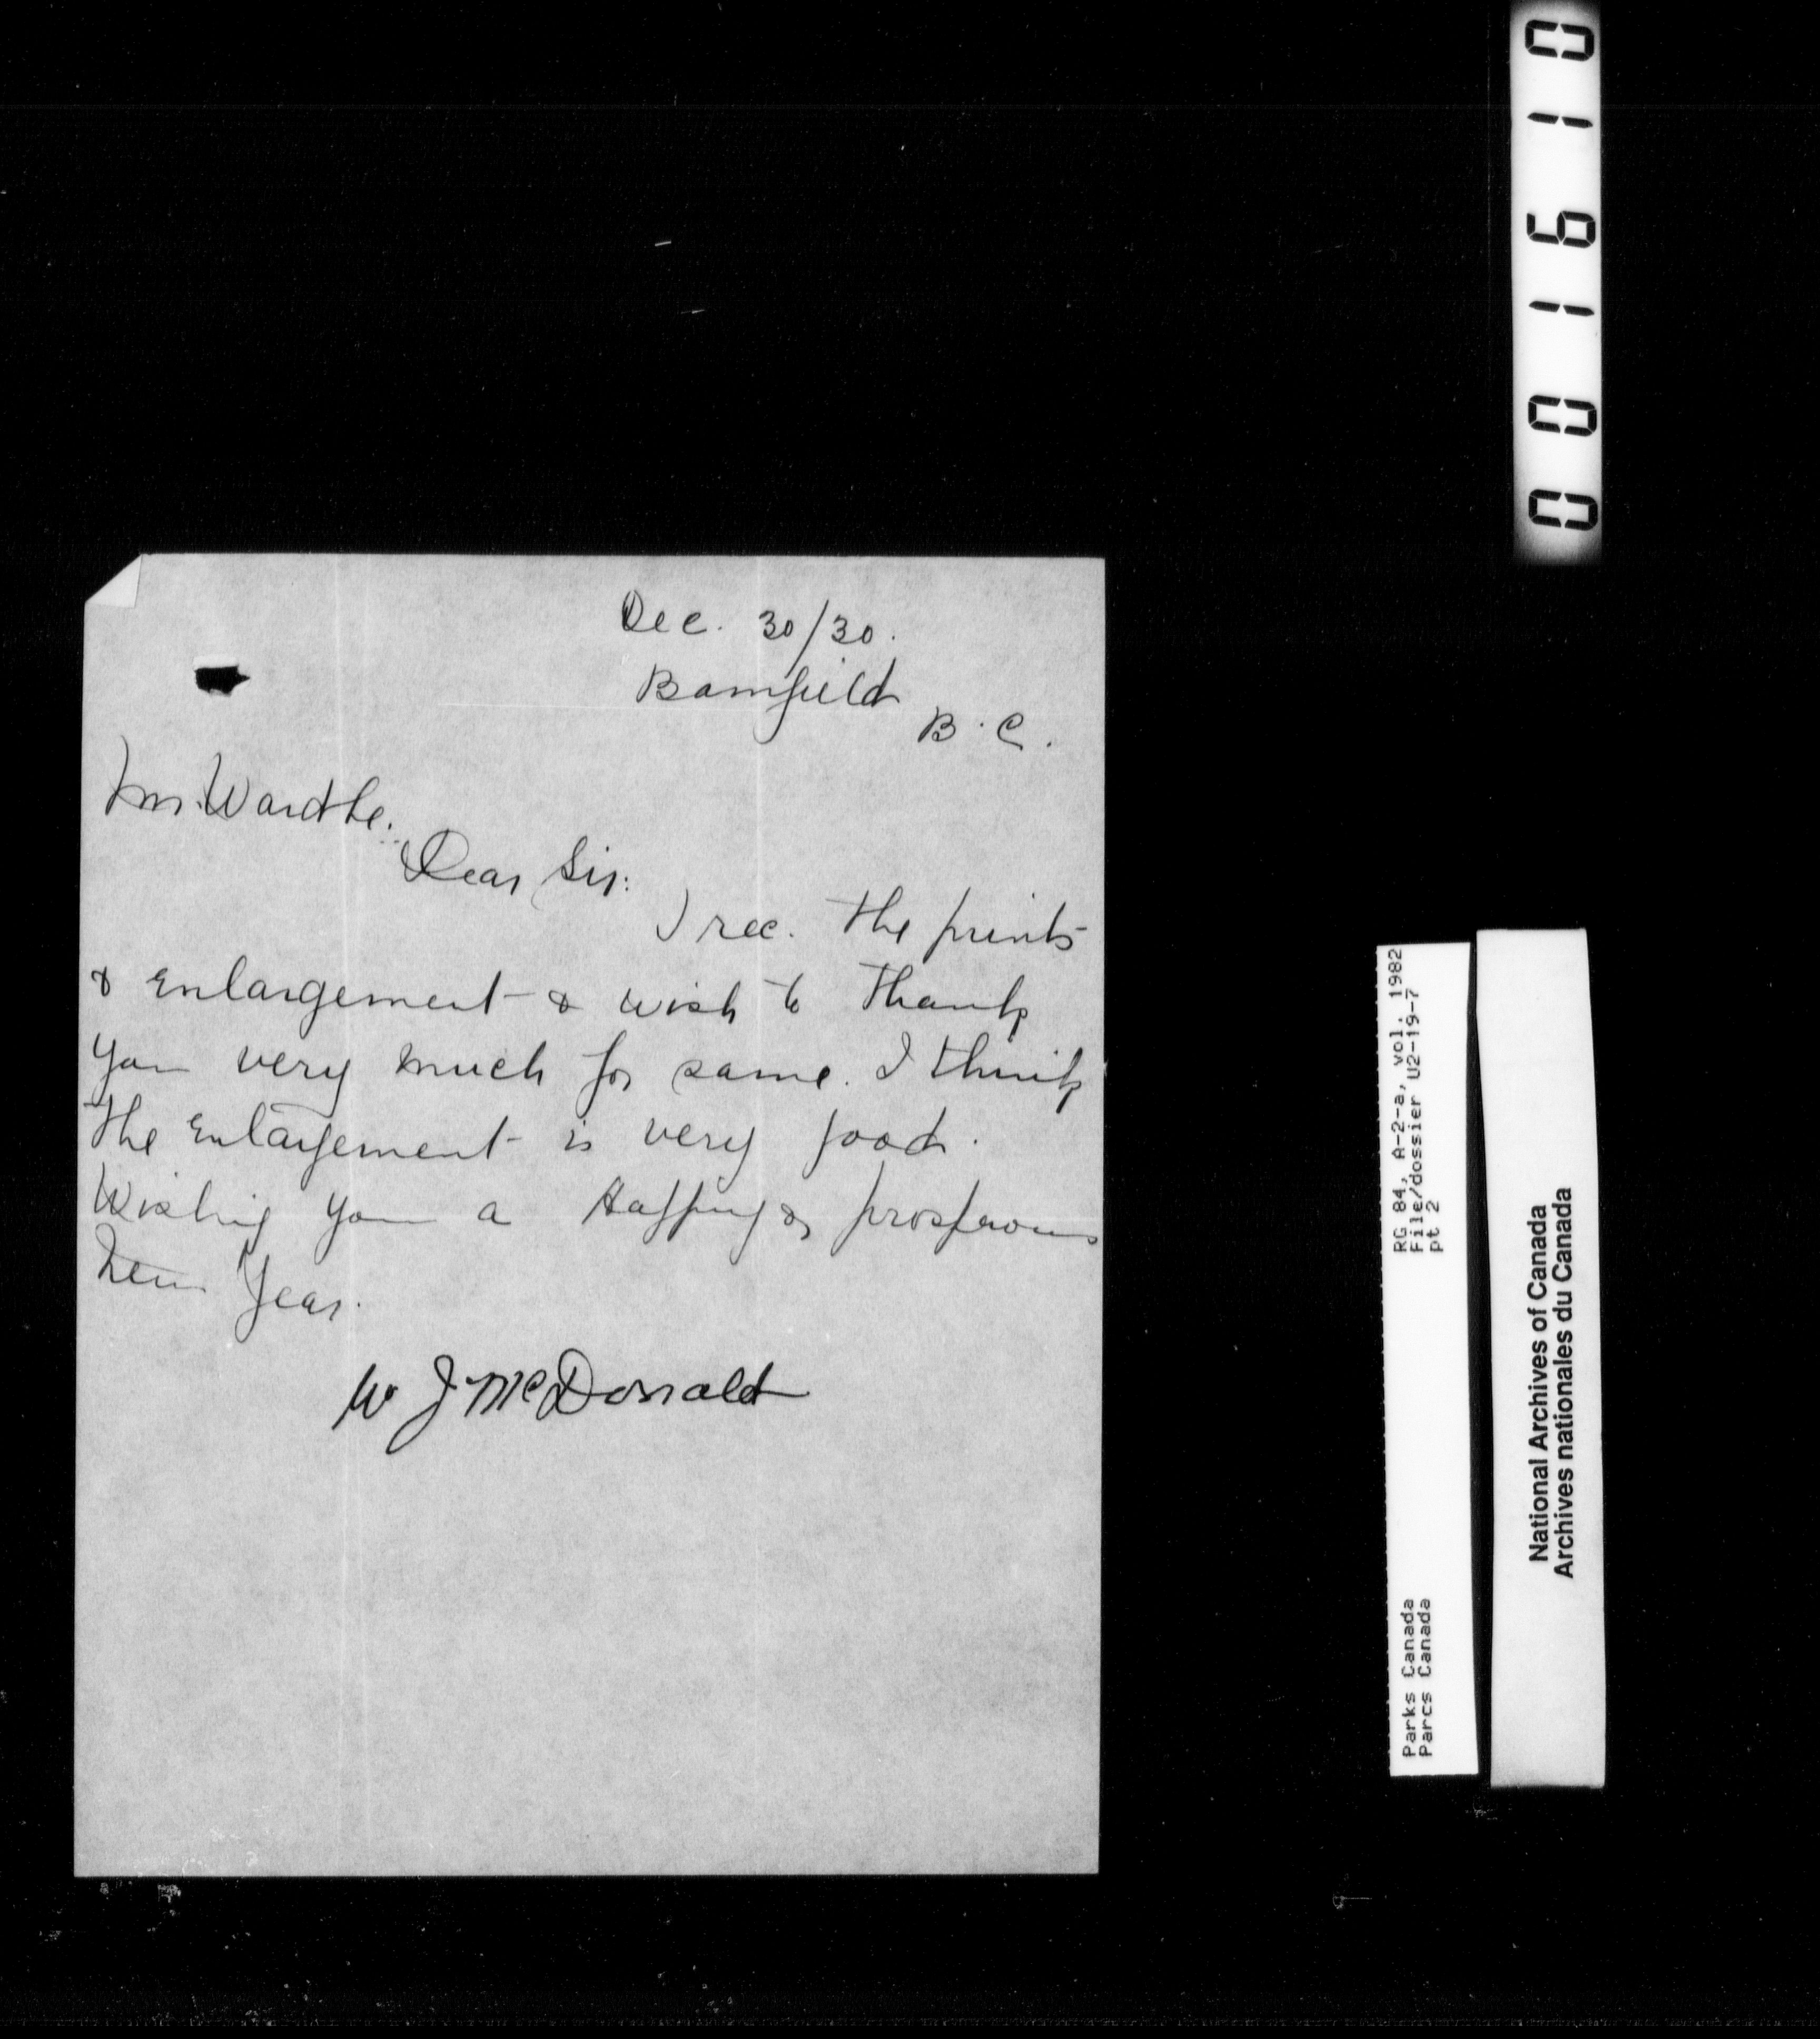 001610
Dec. 30/30.
Bamfield
B.C.
Mr. Wardle:
Dear Sir:
I rec. the prints
& enlargement & wish to thank
you very much for same. I think
the enlargement is very good.
Wishing you a Happy & prosperous
New Year.
W J McDonald
RG 84, A-2-a, vol. 1982
File/dossier U2-19-7
pt 2
Parks Canada
Parcs Canada
National Archives of Canada
Archives nationales du Canada